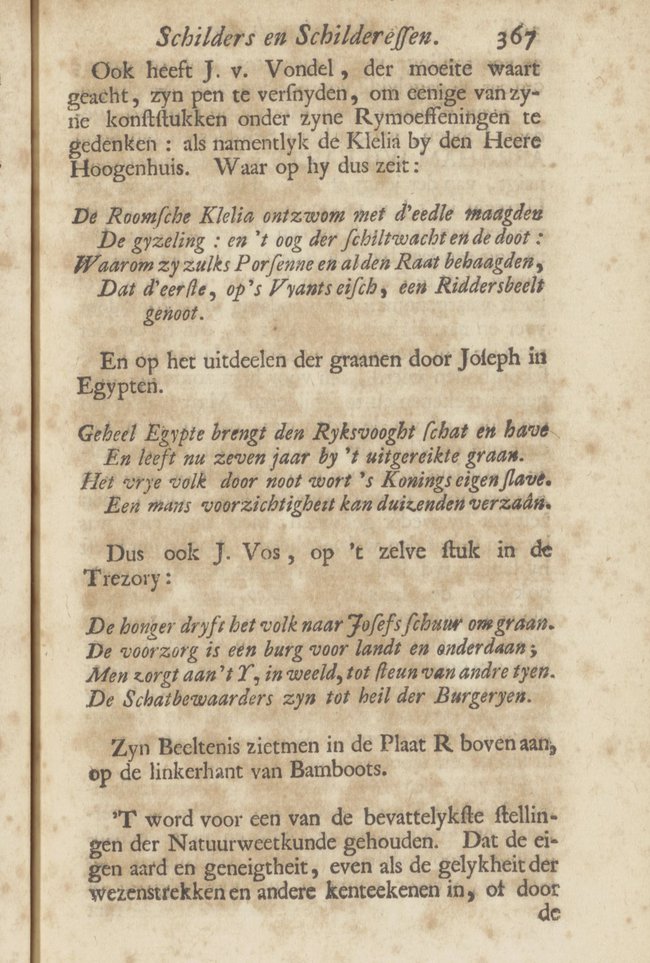 Schilders en Schildereſſen. 367
Ook heeft J. v. Vondel, der moeite waart
geacht, zyn pen te verſnyden, om eenige van zy-
ne konſtſtukken onder zyne Rymoeffeningen te
gedenken: als namentlyk de Klelia by den Heere
Hoogenhuis. Waar op hy dus zeit:
De Roomſche Klelia ontzwom met d'eedle maagden
De gyzeling: en 't oog der ſchiltwacht en de doot:
Waarom zy zulks Porſenne en al den Raat behaagden,
Dat d'eerſte, op's Vyants eiſch, een Riddersbeelt
genoot.
En op het uitdeelen der graanen door Joſeph in
Egypten.
Geheel Egypte brengt den Ryksvooght ſchat en have
En leeft nu zeven jaar by 't uitgereikte graan.
Het vrye volk door noot wort 's Konings eigen ſlave.
Een mans voorzichtigheit kan duizenden verzaân.
Dus ook J. Vos, op 't zelve ſtuk in de
Trezory:
De honger dryft het volk naar Joſefs ſchuur om graan.
De voorzorg is een burg voor landt en onderdaan;
Men zorgt aan 't Y, in weeld, tot ſteun van andre tyen.
De Schatbewaarders zyn tot heil der Burgeryen.
Zyn Beeltenis zietmen in de Plaat R boven aan,
op de linkerhant van Bamboots.
'T word voor een van de bevattelykſte ſtellin-
gen der Natuurweetkunde gehouden. Dat de ei-
gen aard en geneigtheit, even als de gelykheit der
wezenstrekken en andere kenteekenen in, of door
de